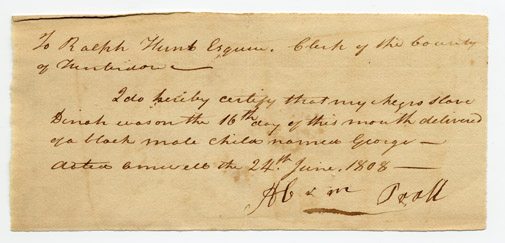 To Ralph Hunt Esquire. Clerk of the County
of Hunterdon
I do hereby certify that my Negro slave
Dinah was on the 16th day of this month delivered
of a black male child named George —
dated amwell the 24th June. 1808 —
Abrm Prall